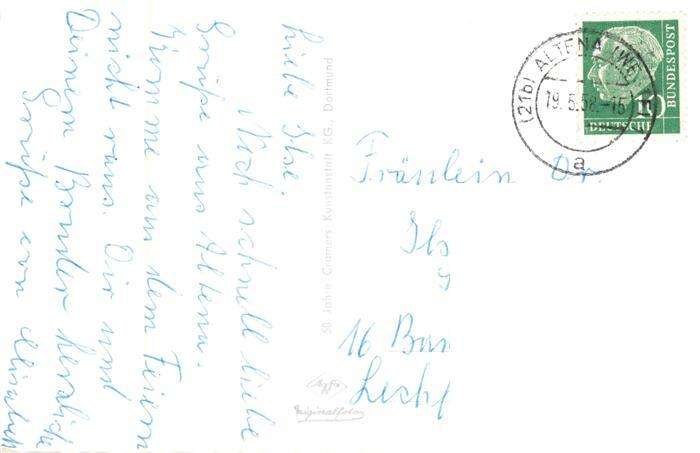 Liebe Ilse.
Noch schnell liebe
Grüße aus Altena.
Komme aus dem Feiern
nicht raus. Dir und
Deinem Bruder herzliche
Grüße von
50 Jahre Cramers Kunstanstalt KG., Dortmund
Agfa
Originalfoto
Fräulein Dr.
Ils
16
Lech
(21b) ALTENA (WESTF)
19.5.58.-15
a
DEUTSCHE
BUNDESPOST
10